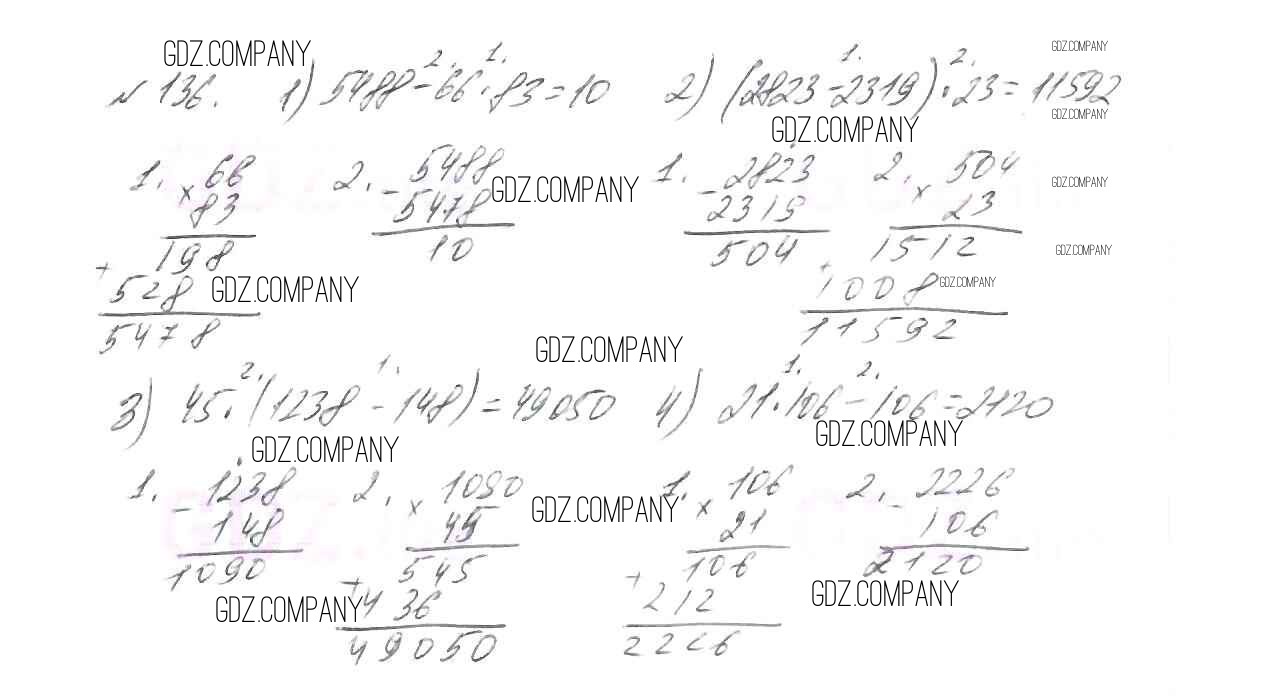 GDZ.COMPANY GDZ.COMPANY
2. 1. 1. 2.
№ 136. 1) 5488 - 66 · 83 = 10 2) (2823 - 2319) · 23 = 11592
GDZ.COMPANY GDZ.COMPANY
1. × 66 2. - 5488 1. - 2823 2. × 504
GDZ.COMPANY GDZ.COMPANY
83 5478 2319 23
198 10 504 1512
GDZ.COMPANY
+ 528 + 1008
GDZ.COMPANY GDZ.COMPANY
5478 11592
GDZ.COMPANY
2. 1. 1. 2.
3) 45 · (1238 - 148) = 49050 4) 21 · 106 - 106 = 2120
GDZ.COMPANY GDZ.COMPANY
1. - 1238 2. × 1090 1. × 106 2. - 2226
GDZ.COMPANY
148 45 21 106
1090 545 106 2120
GDZ.COMPANY GDZ.COMPANY
+ 436 + 212
49050 2226